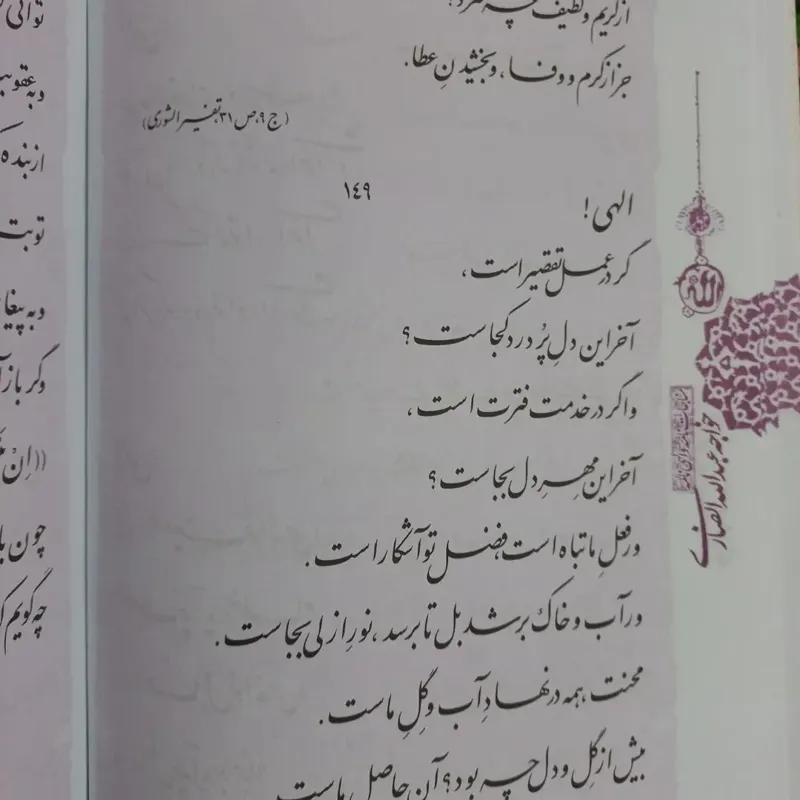 از کریم و لطیف چه سزد؟
جز از کرم و وفا، و بخشیدنِ عطا.
(ج ۹، ص ۳۱، تفسیر الشوری)
۱۴۹
الهی!
گر در عمل تقصیر است،
آخر این دلِ پُر درد کجاست؟
و اگر در خدمت فترت است،
آخر این مِهرِ دل بجاست؟
ور فعلِ ما تباه است، فضل تو آشکار است.
ور آب و خاک برشد بل تا برسد، نورِ ازلی بجاست.
محنت همه در نهادِ آب و گِلِ ماست.
بیش از گِل و دل چه بود؟ آن حاصل ماست
الله
خواجه عبدالله انصاری
توانی
و به عقوبت
از بنده
توبت
و به پیغا
وگر باز آ
((اِنْ
چون با
چه گویم ک